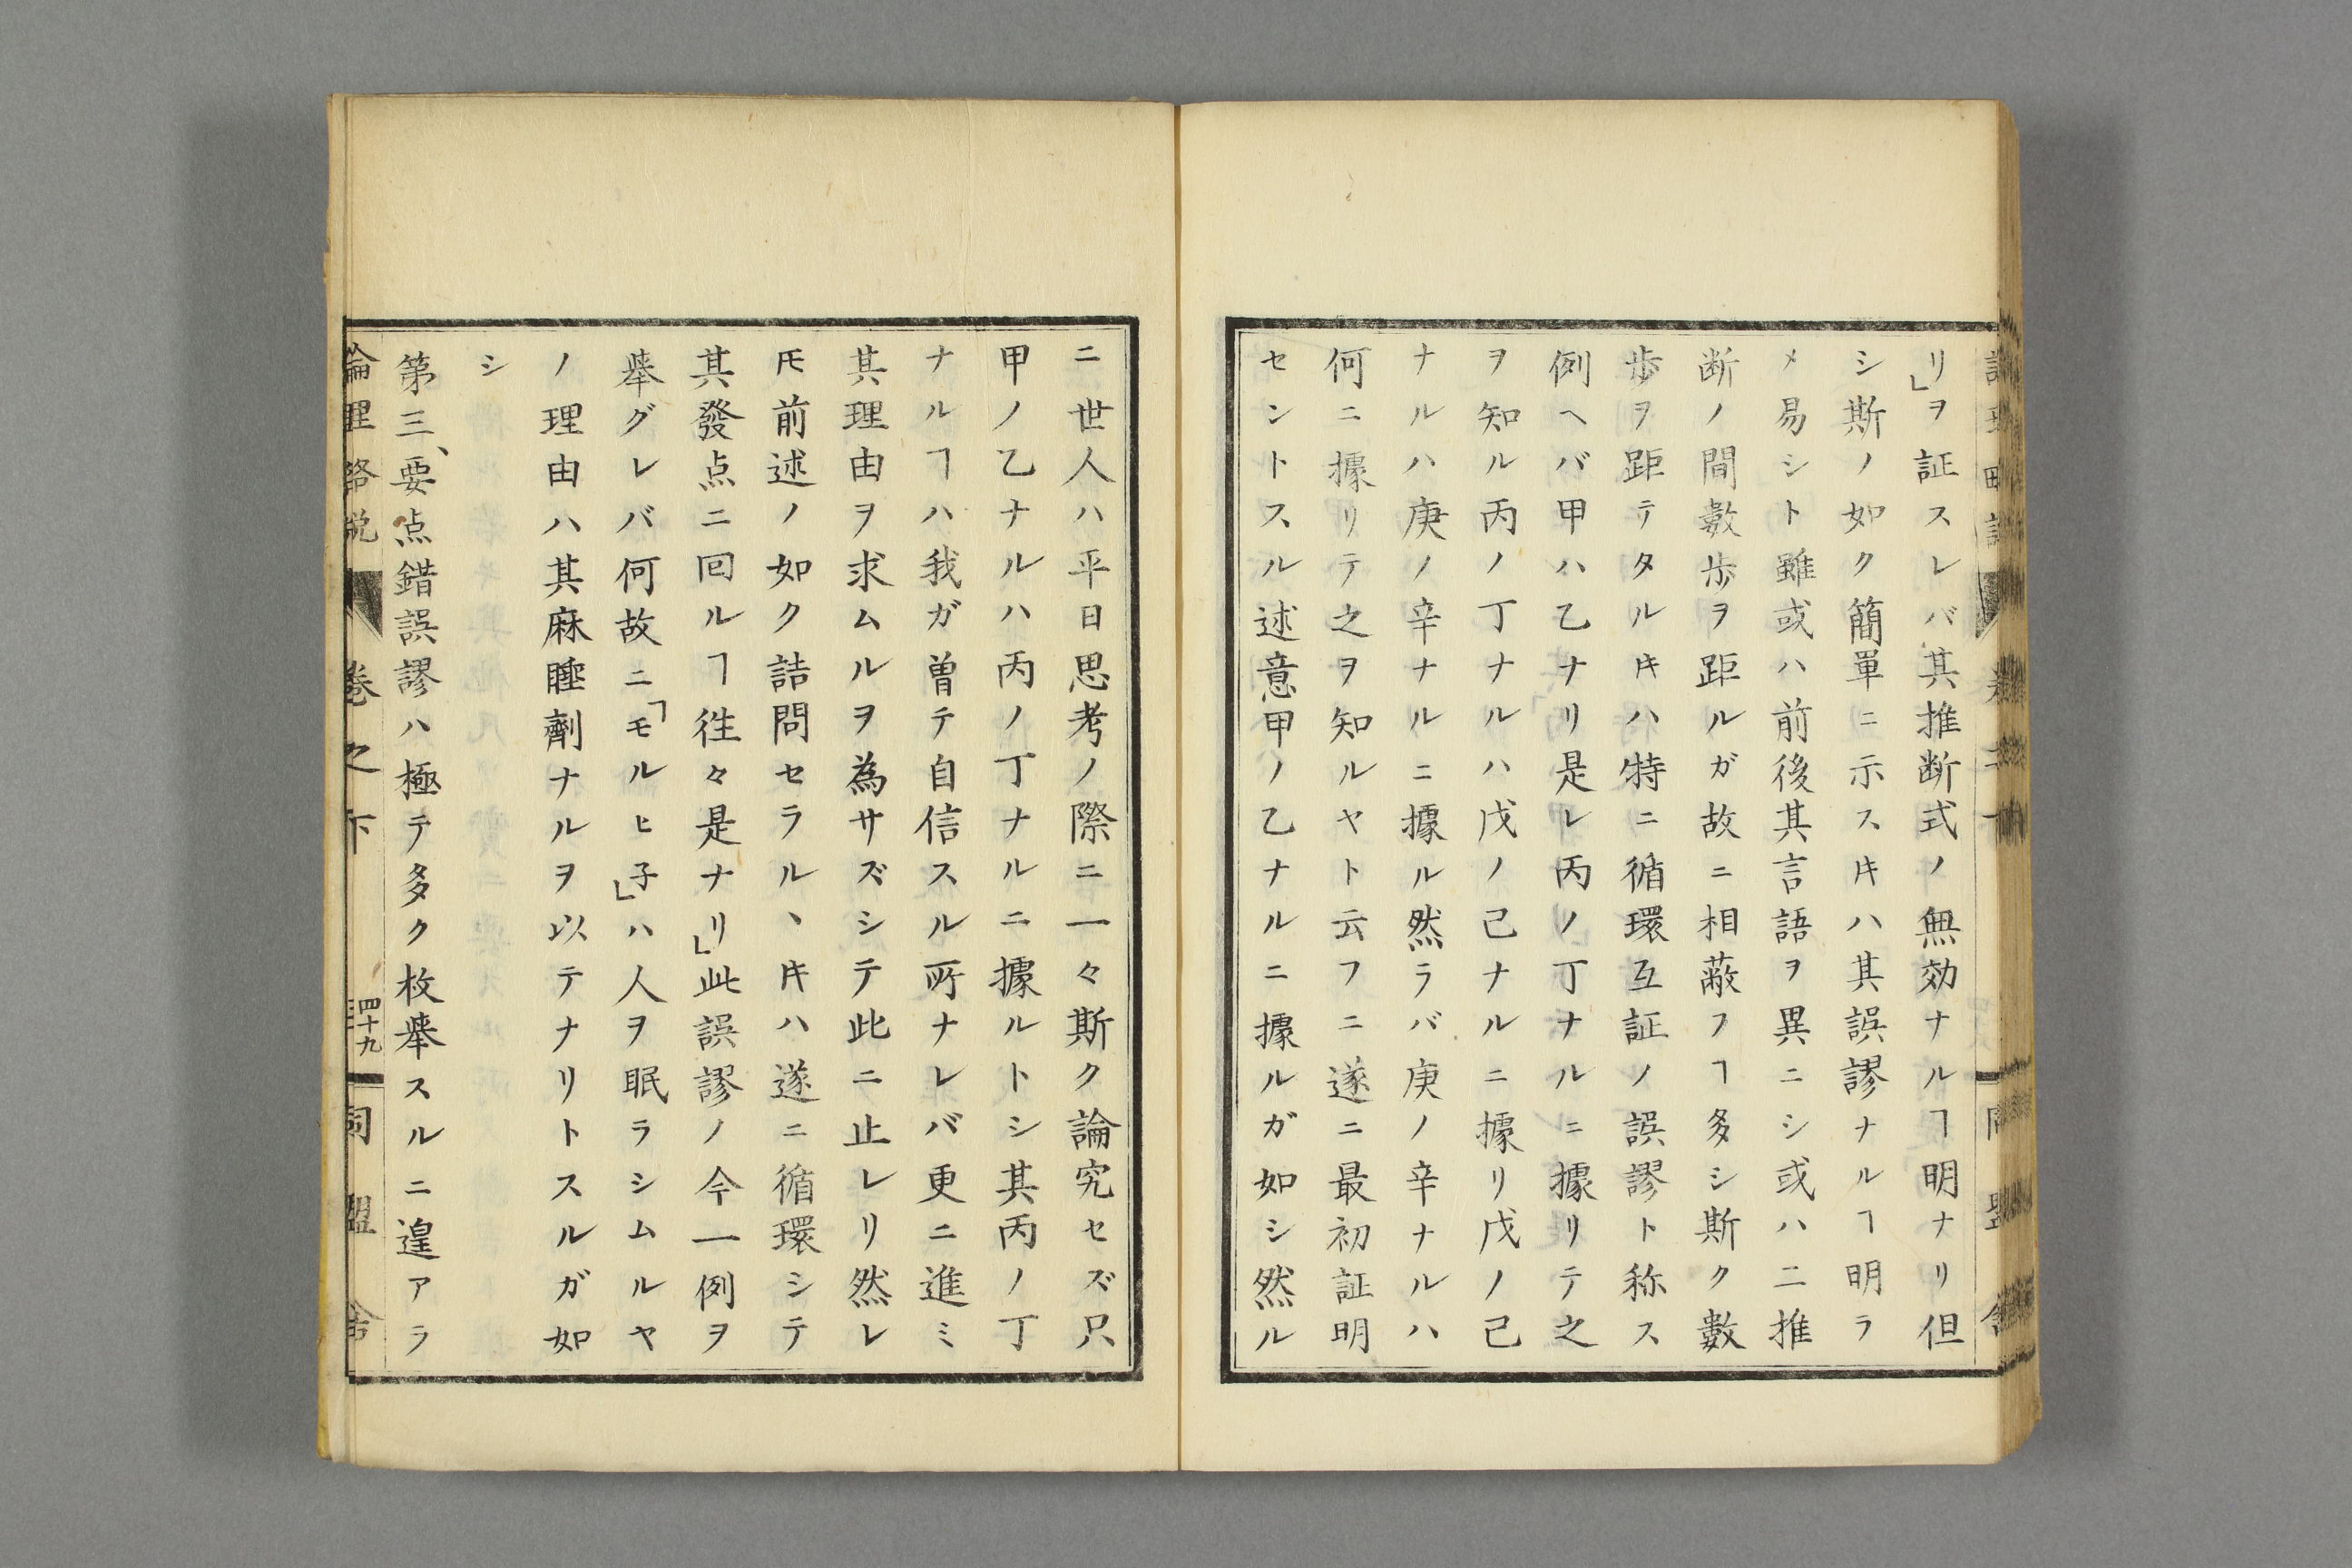 リ」ヲ証スレバ其推断式ノ無効ナルヿ明ナリ但
シ斯ノ如ク簡単ニ示スキハ其誤謬ナルヿ明ラ
メ易シト雖或ハ前後其言語ヲ異ニシ或ハ二推
断ノ間數歩ヲ距ルガ故ニ相蔽フヿ多シ斯ク數
歩ヲ距テタルキハ特ニ循環互証ノ誤謬ト称ス
例ヘバ甲ハ乙ナリ是レ丙ノ丁ナルニ據リテ之
ヲ知ル丙ノ丁ナルハ戊ノ己ナルニ據リ戊ノ己
ナルハ庚ノ辛ナルニ據ル然ラバ庚ノ辛ナルハ
何ニ據リテ之ヲ知ルヤト云フニ遂ニ最初証明
セントスル述意甲ノ乙ナルニ據ルガ如シ然ル
ニ世人ハ平日思考ノ際ニ一々斯ク論究セズ只
甲ノ乙ナルハ丙ノ丁ナルニ據ルトシ其丙ノ丁
ナルヿハ我ガ曽テ自信スル所ナレバ更ニ進ミ
其理由ヲ求ムルヲ為サズシテ此ニ止レリ然レ
𪜈前述ノ如ク詰問セラルヽキハ遂ニ循環シテ
其發点ニ回ルヿ徃々是ナリ」此誤謬ノ今一例ヲ
舉グレバ何故ニ「モルヒ子」ハ人ヲ眠ラシムルヤ
ノ理由ハ其麻睡劑ナルヲ以テナリトスルガ如
シ
第三、要点錯誤謬ハ極テ多ク枚舉スルニ遑アラ
論理略説 卷之下 四十九 同盟舎